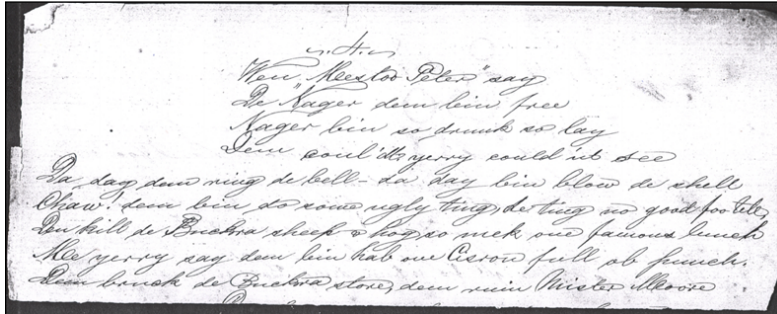 .4.
Wen "Meestoo Peter" say
De "Nager dem bin free
Nager bin so drunk so lay
Dem coul'dt yerry could nt see
Da day dem ring de bell - da day bin blow de shell
Chaw! dem bin do some ugly ting, de ting no good foo tell,
Den kill de Buckra sheek & hog, so mek one famous lunch
Me yerry say dem bin hab one Cisron full ob punch.
Dem bruck de Buckra store, dem ruin Mister Moore